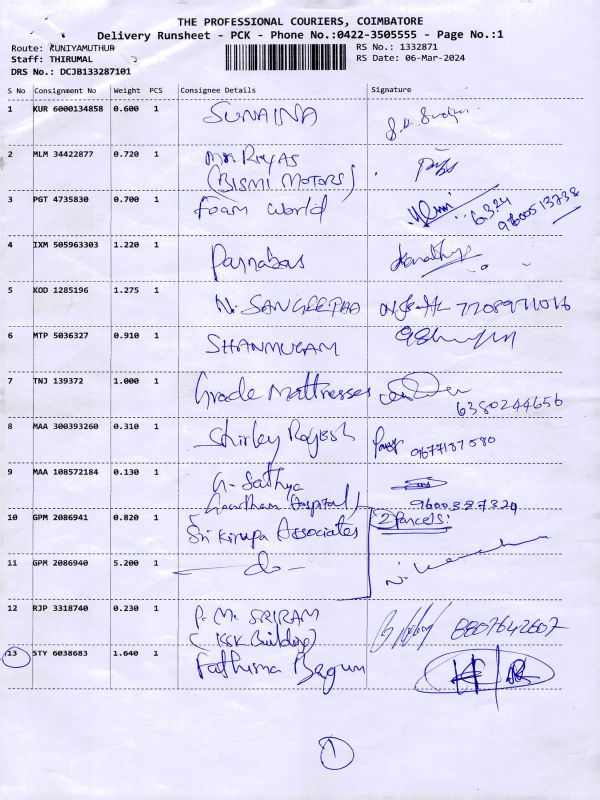 THE PROFESSIONAL COURIERS, COIMBATORE
Delivery Runsheet - PCK - Phone No.:0422-3505555 - Page No.:1
Route: KUNIYAMUTHUR
RS No.: 1332871
Staff: THIRUMAL
RS Date: 06-Mar-2024
DRS No.: DCJB133287101
S No Consignment No Weight PCS Consignee Details Signature
1 KUR 6000134858 0.600 1 SUNAINA
2 MLM 34422877 0.720 1 Mr RIYAS
(BISMI MOTORS)
3 PGT 4735830 0.700 1 Foam World 6.3.24
9600513738
4 IXM 505963303 1.220 1 Parnabas
5 KOD 1285196 1.275 1 N. SANGEETHA 7708971016
6 MTP 5036327 0.910 1 SHANMUGAM
7 TNJ 139372 1.000 1 Grade Mattresses
6380244656
8 MAA 300393260 0.310 1 Shirley Rajesh 9677187580
9 MAA 108572184 0.130 1 G. Sathya
Gowtham Hospital / 9600387324
10 GPM 2086941 0.820 1 Sri Kirupa Associates 2 Parcels
11 GPM 2086940 5.200 1 - do -
12 RJP 3318740 0.230 1 P. M. SRIRAM 8807642607
(KSK Building)
13 STY 6038683 1.640 1 Fathima Begum
1